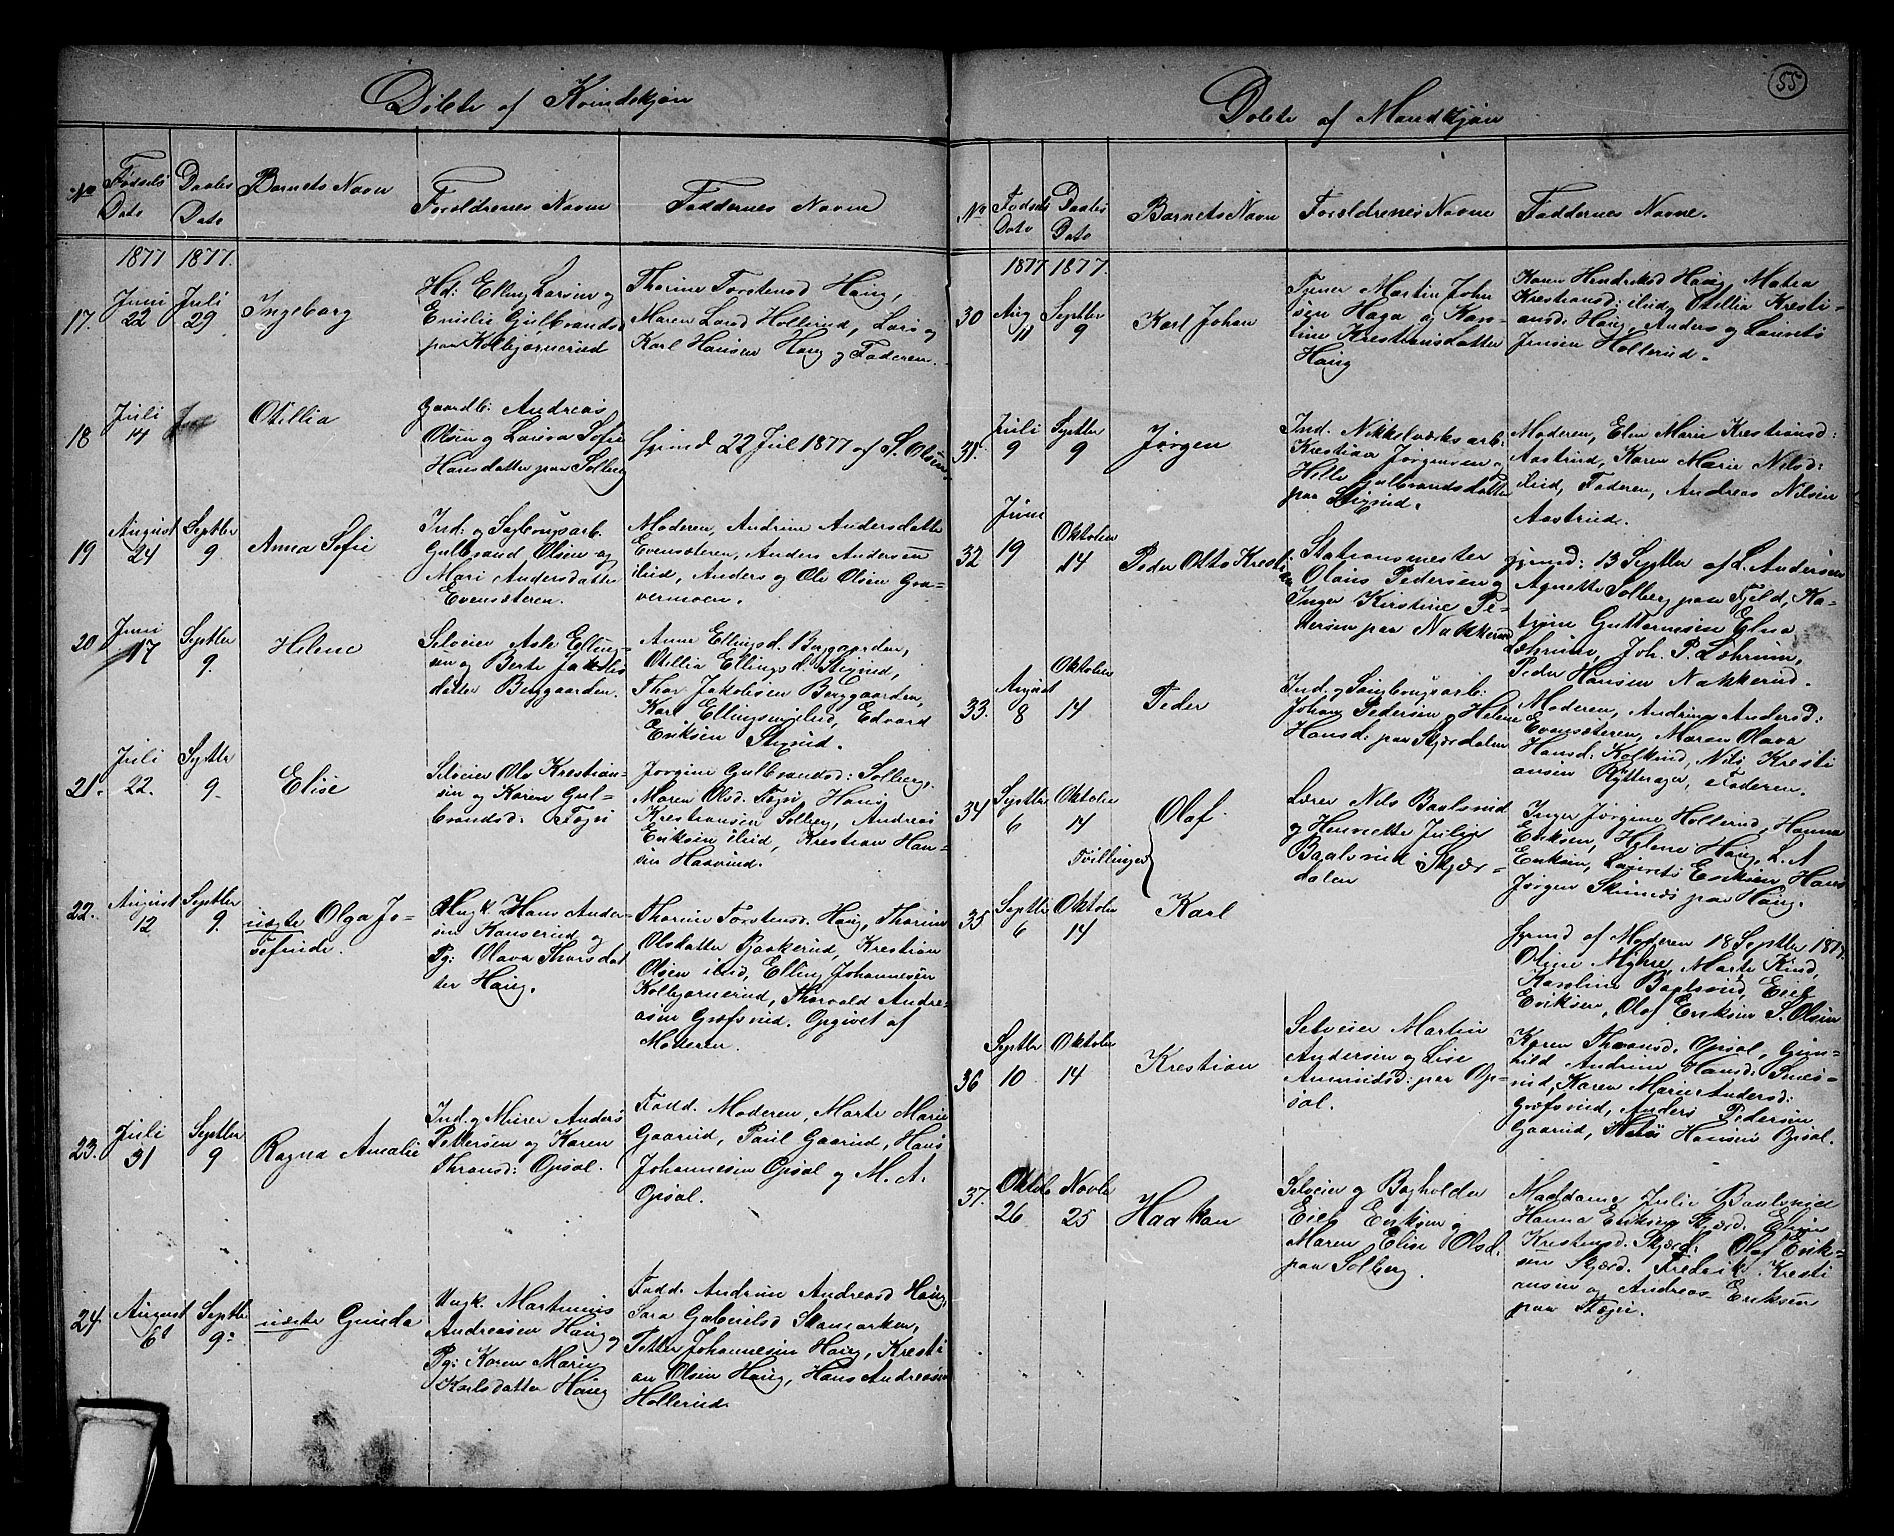 Døbte af Kvindekjøn
No
Fødsels Dato
Daabs Dato
Barnets Navn
Forældrenes Navne
Faddernes Navne
1877 1877.
17.
Juni 22
Juli 29
Ingeborg
Hd: Elling Larsen og
Emilie Gulbrandsd
paa Kolbjørnerud
Thorine Torstensd Haug,
Maren Larsd Hollerud, Lars og
Karl Hansen Haug og Faderen.
18
Juli 14
Otillia
Gaardb: Andreas
Olsen og Lovisa Sofie
Hansdatter paa Solberg
hjemd 22 Jul 1877 af S. Olsen
19
August 24
Septbr 9.
Anna Sofie
Ind. og Sagbrugsarb.
Gulbrand Olsen og
Mari Andersdatter
Evensæteren.
Moderen, Andrine Andersdatter
Evensæteren, Anders Andersen
ibid, Anders og Ole Olsen Gra-
vermoen.
20
Juni 17
Septbr 9.
Helene
Selveier Asle Elling-
sen og Berte Jakobs
datter Berggaarden.
Anne Ellingsd. Berggarden,
Otillia Ellingsd. Stixrud,
Thor Jakobsen Berggaarden,
Karl Ellingsen ibid, Edvard
Eriksen Stixrud.
21.
Juli 22.
Septbr 9.
Elise
Selveier Ole Kristian-
sen og Karen Gul-
brandsd: Fagi
Jørgine Gulbrandsd: Solberg,
Maren Olsd. Fagi, Hans
Krestiansen Solberg, Andreas
Eriksen ibid, Krestian Han-
sen Haavrud.
22.
August 12
Septbr 9.
uægte Olga Jo-
sefine.
Ungk. Hans Ander-
sen Kanserud og
Pg: Olava Thorsdat
ter Haug.
Thorine Torstensd. Haug, Thorine
Olsdatter Baakerud, Krestian
Olsen ibid, Elling Johannesen
Kolbjørnerud, Thorvald Andre-
asen Græfsrud. Opgivet af
Moderen.
23.
Juli 31
Septbr 9
Ragna Amalie
Ind. og Murer Anders
Pettersen og Karen
Thransd: Opsal.
Fadd. Moderen, Marte Marie
Gaarud, Paul Gaarud, Hans
Johannesen Opsal og M. A.
Opsal.
24.
August 6
Septbr 9.
uægte Gunda
Ungk. Martinius
Andreasen Haug og
Pg: Karen Marie
Karlsdatter Haug
Fadd. Andrine Andreasd Haug,
Sara Gabrielsd Stamarken,
Petter Johannesen Haug, Kresti
an Olsen Haug, Hans Andreasen
Hollerud.
55
Døbte af Mandkjøn
No
Fødsels Dato
Daabs Dato
Barnets Navn
Forældrenes Navne
Faddernes Navne.
1877 1877.
30
Aug 11
Septbr 9
Karl Johan
Tjener Martin John
sen Haga og Kar-
line Krestiansdatter
Haug
Karen Hendriksd Haug, Matea
Krestiansd: ibid, Otillia Kresti-
ansd: Haug, Anders og Laurits
Jensen Hollerud.
31.
Juli 9
Septbr 9
Jørgen
Ind. Nikkelværksarb.
Krestian Jørgensen og
Helle Gulbrandsdatter
paa Stixrud.
Moderen, Elen Marie Krestiansd:
Aastrud, Karen Marie Nilsd:
ibid, Faderen, Andreas Nilsen
Aastrud.
32
Juni 19
Oktober 14
Peder Otto Krestian
Stationsmester
Olaus Pedersen og
Inger Kirstine Pe-
dersen paa Nakkerud
hjemd: 13 Septbr af L. Andersen
Agnethe Solberg paa Fjeld, Ka-
trine Guttormsen, Elna
Læhrum, Joh. P. Læhrum,
Peder Hansen Nakkerud.
33.
August 8
Oktober 14
Peder
Ind. og Saugbrugsarb:
Johan Pedersen og Helene
Hansd. paa Skjærdalen
Moderen, Andrine Andersd:
Evensæteren, Maren Olava
Hansd: Kolkind, Nils Kresti
ansen Rytterager, Faderen.
34
Septbr 6
Oktober 14
Tvillinger
Olaf.
Lærer Nils Baalsrud
og Henriette Julie
Baalsrud Skjær-
dalen
Inger Jørgine Hollerud, Hanna
Eriksen, Helene Haug, L. A
Eriksen, Laurits Eriksen, Hans
Jørgen Skinnes paa Haug.
35
Septbr 6
Oktober 14
Karl
hjemd af Moderen 18 Septbr 1877.
Oline Myhre, Marte Kind,
Karoline Baalsrud, Erik
Eriksen, Olaf Eriksen S. Olsen
36
Septbr 10
Oktober 14
Krestian
Selveier Martin
Andersen og Lise
Amundsd: paa Op-
sal.
Karen Thransd. Opsal, Gun-
hild Andrine Hansd: Snes-
rud, Karen Marie Andersd:
Græfsrud, Anders Pedersen
Gaarud, Nils Hansen Opsal.
37.
Oktob 26
Novbr 25
Haakon
Selveier og Bagholder
Erik Eriksen og
Maren Elise Olsd:
paa Solberg.
Maddame Julie Baalsrud
Hanna Eriksen Skjærd. Elen
Kristensd. Skjærd: Olaf Erik-
sen Skjærd. Fredrik Kresti
ansen og Andreas Eriksen
paa Fægri.